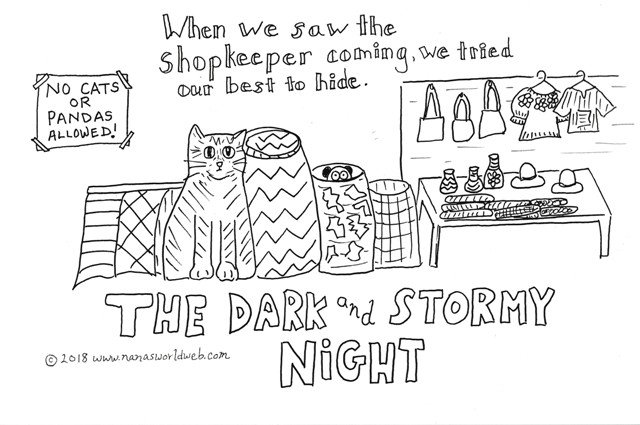 When we saw the
shopkeeper coming, we tried
our best to hide.
NO CATS
OR
PANDAS
ALLOWED!
THE DARK and STORMY
NiGHT
© 2018 www.nanasworldweb.com